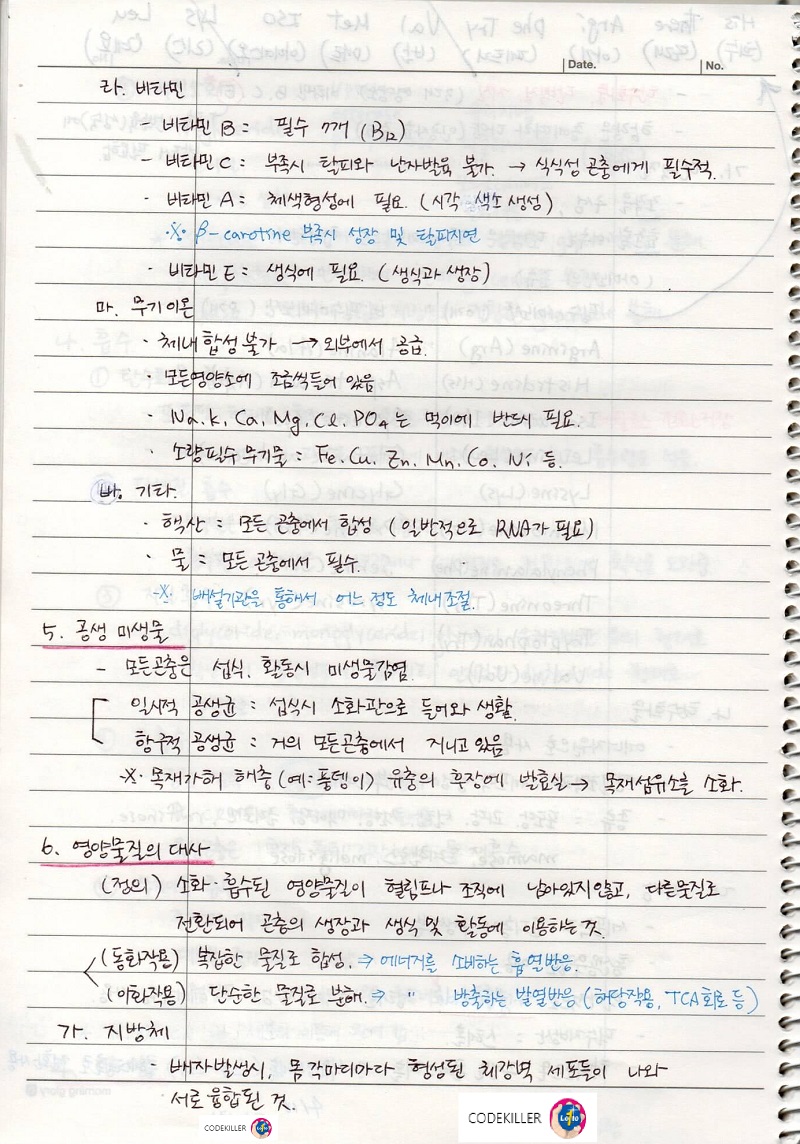 Date.
No.
라. 비타민
- 비타민 B = 필수 7개 (B12)
- 비타민 C = 부족시 탈피와 난자발육 불가. → 식식성 곤충에게 필수적.
· 비타민 A = 체색형성에 필요. (시각 색소 생성)
※ β-carotine 부족시 성장 및 탈피지연
· 비타민 E = 생식에 필요. (생식과 생장)
마. 무기이온
· 체내 합성 불가 → 외부에서 공급.
· 모든영양소에 조금씩 들어 있음
· Na. K. Ca. Mg. Cl. PO4 는 먹이에 반드시 필요.
· 소량필수 무기물 = Fe. Cu. Zn. Mn. Co. Ni 등.
바. 기타.
· 핵산 = 모든 곤충에서 합성 (일반적으로 RNA가 필요)
· 물 = 모든 곤충에서 필수.
※ 배설기관을 통해서 어느 정도 체내조절.
5. 공생 미생물
- 모든곤충은 섭식. 활동시 미생물감염.
일시적 공생균 = 섭식시 소화관으로 들어와 생활.
항구적 공생균 = 거의 모든곤충에서 지니고 있음
※ 목재가해 해충 (예: 풍뎅이) 유충의 후장에 발효실 → 목재섬유소를 소화.
6. 영양물질의 대사
(정의) 소화·흡수된 영양물질이 혈림프나 조직에 남아있지않고, 다른물질로
전환되어 곤충의 생장과 생식 및 활동에 이용하는 것.
(동화작용) 복잡한 물질로 합성. ⇒ 에너거를 소비하는 흡열반응.
(이화작용) 단순한 물질로 분해. ⇒ " 방출하는 발열반응. (해당작용, TCA회로 등)
가. 지방체
· 배자발생시, 몸 각마디마다 형성된 체강벽 세포들이 나와
서로 융합된 것.
CODEKILLER Lotto
CODEKILLER Lotto